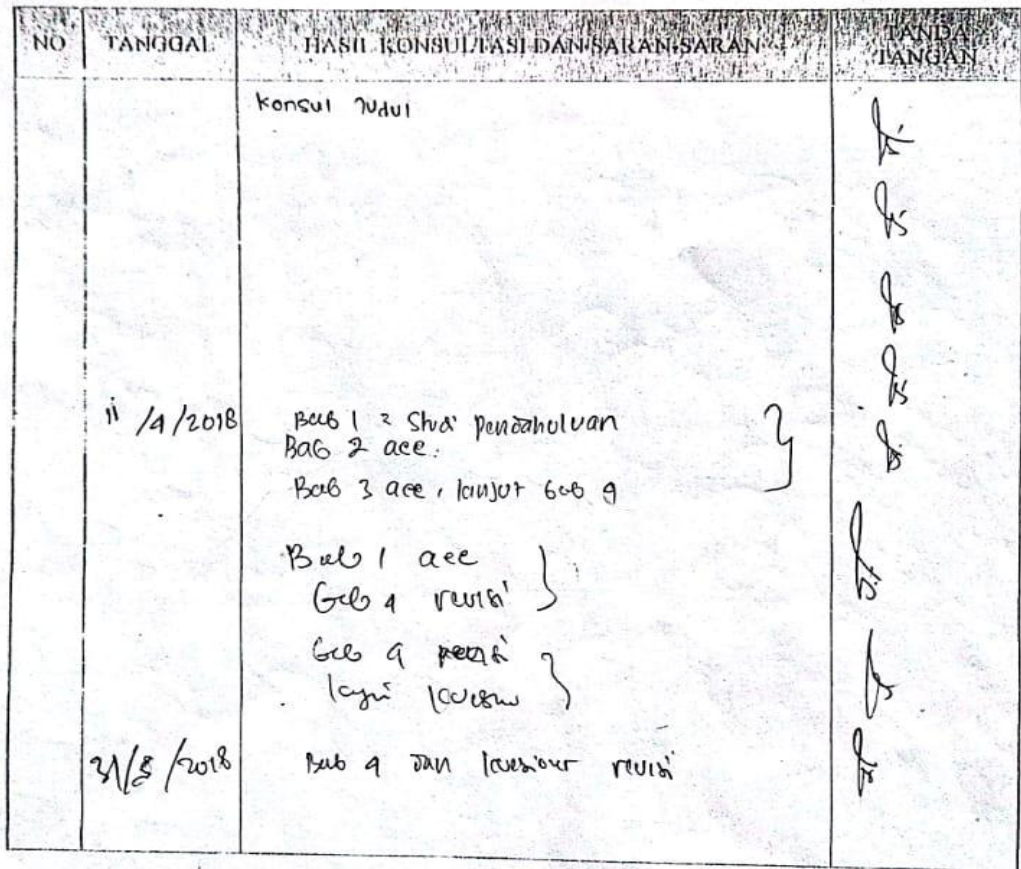 NO TANGGAL HASIL KONSULTASI DAN SARAN-SARAN TANDA TANGAN
Konsul Judul
11/4/2018 Bab 1 = Studi pendahuluan
Bab 2 acc.
Bab 3 acc, lanjut bab 4
Bab 1 acc
Bab 4 revisi
Bab 4 revisi
31/5/2018 Bab 4 dan kuesioner revisi